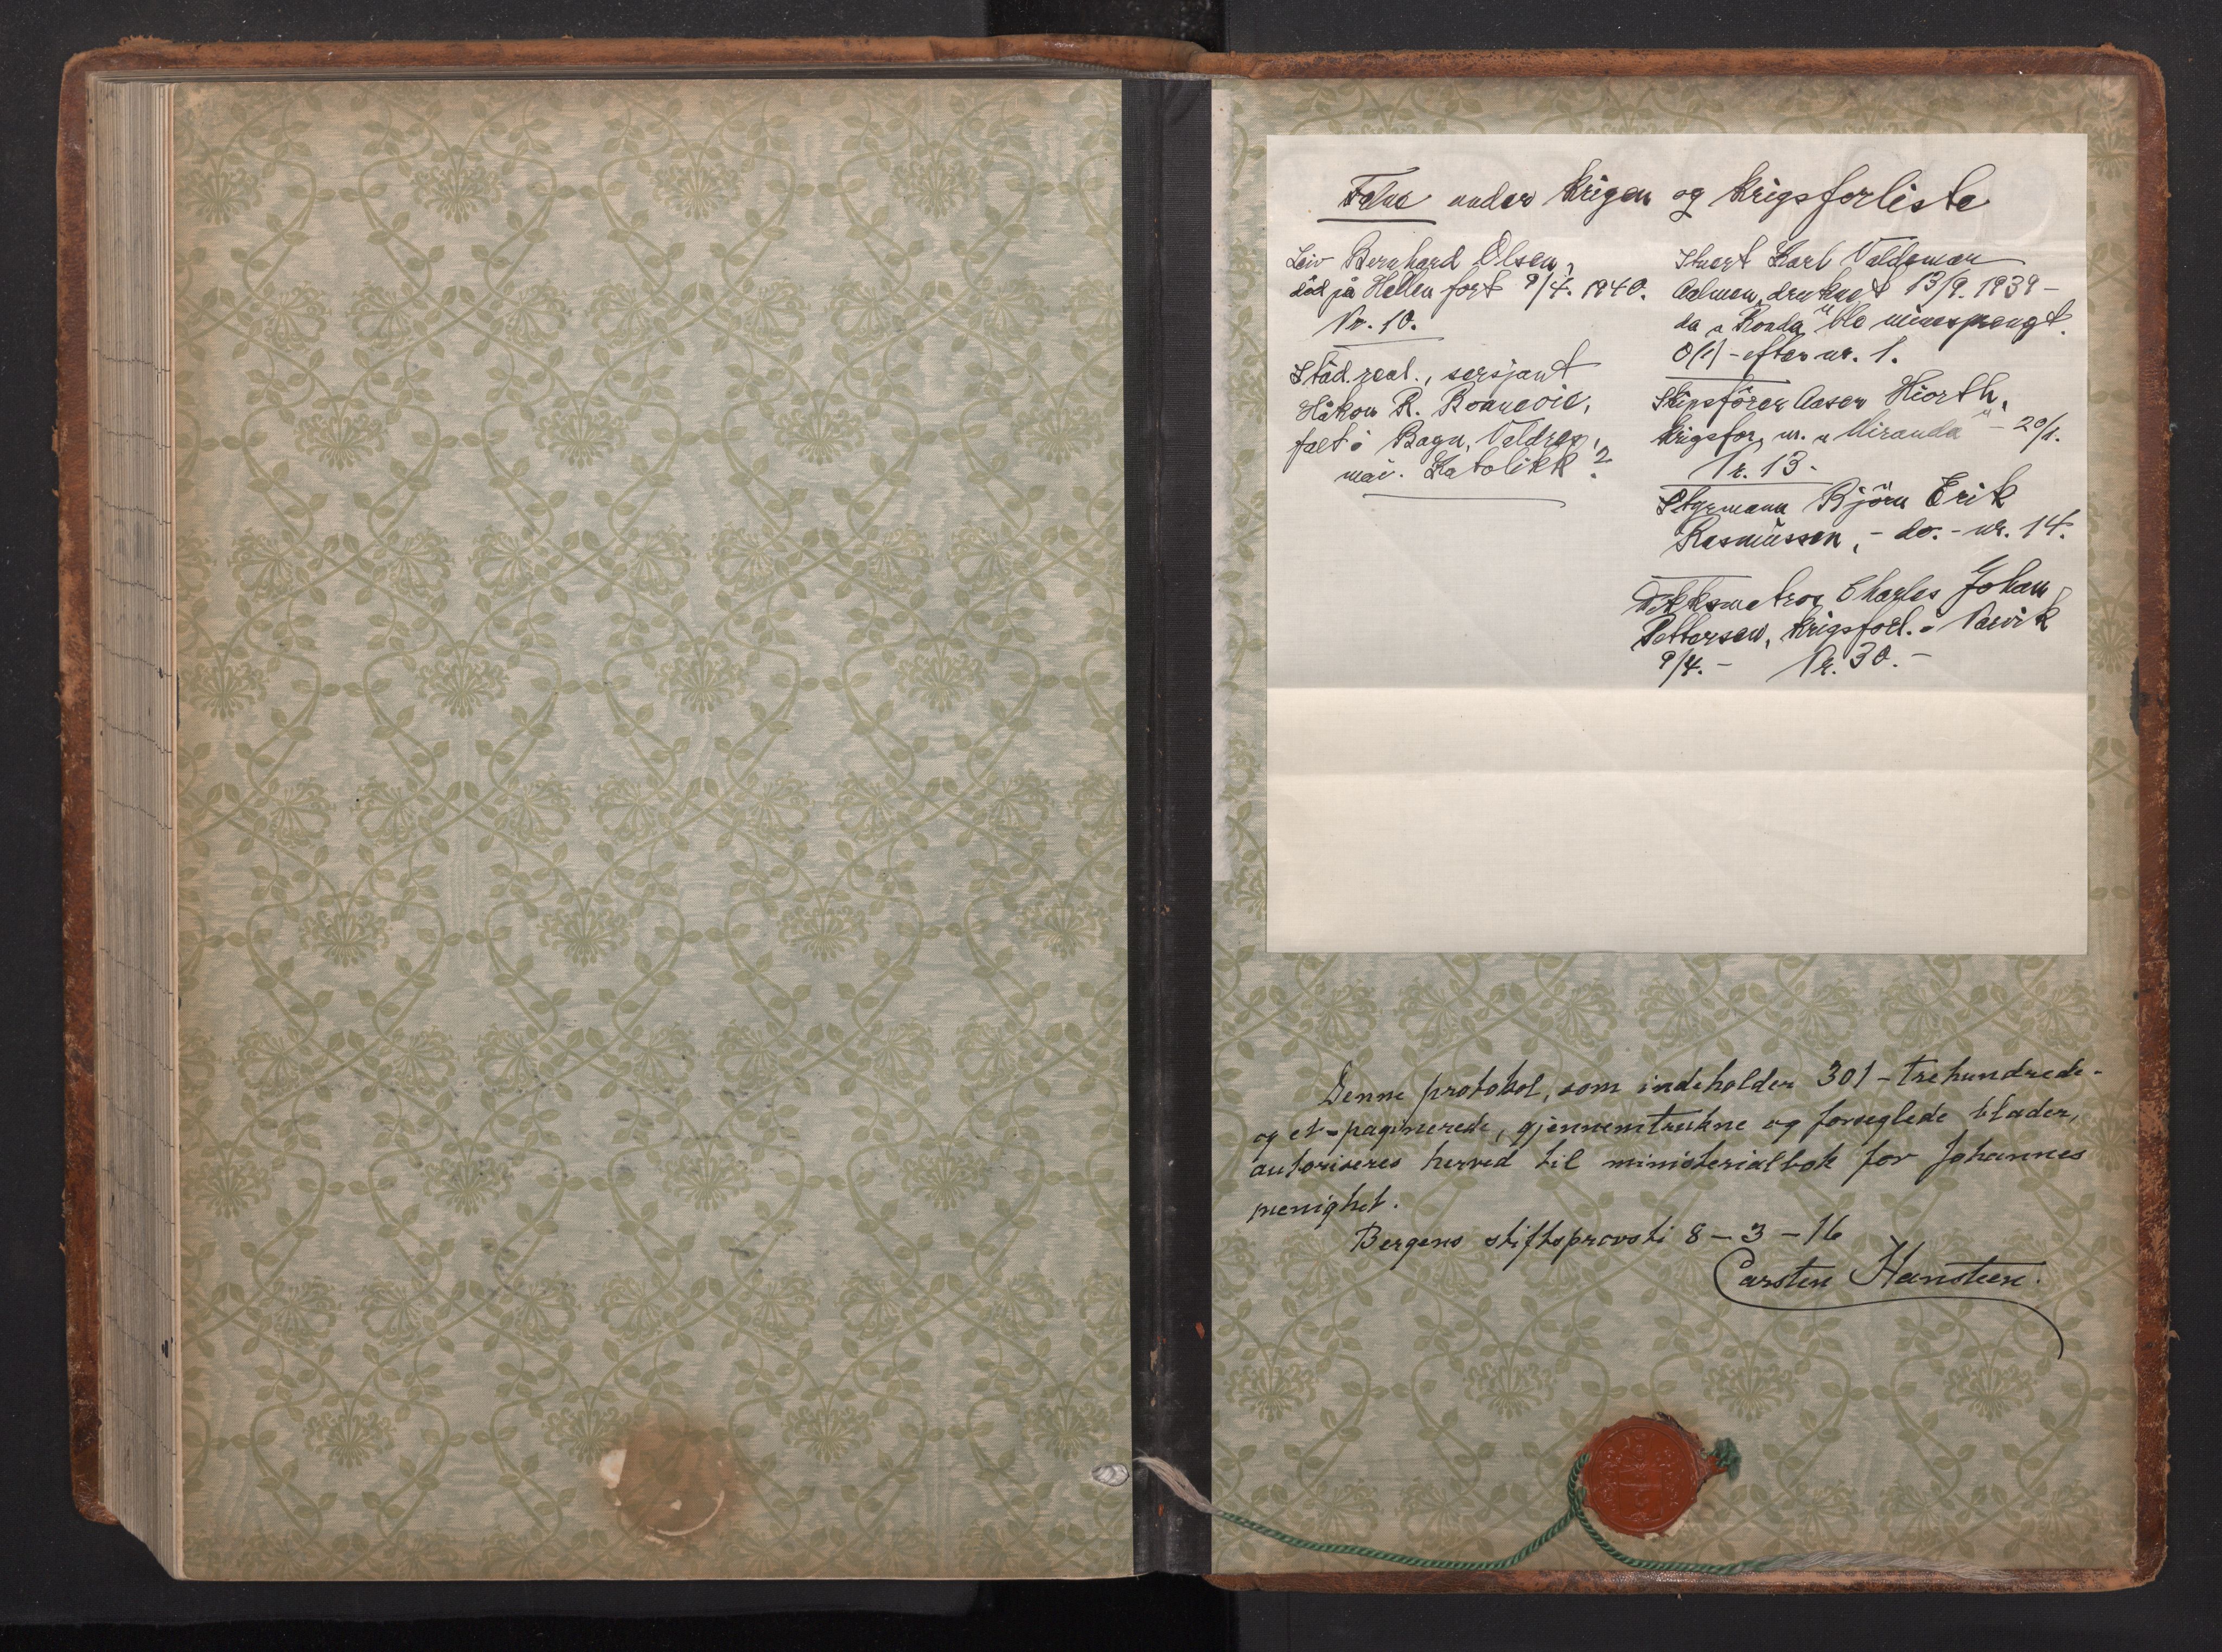 Falne under krigen og krigsforliste
Leiv Bernhard Olsen,
död på Hellen fort 9/4. 1940.
Nr. 10.
Stud. real., sersjant
Håkon R. Bonnevie,
falt i Bagn, Valdres,
mai. Katolikk?
Stuert Karl Valdemar
druknet 13/9. 1939 –
da „Ronda“ ble minesprengt.
0(1) – efter nr. 1.
Skipsförer Aasen Hiorth,
krigsfor. m. „Miranda“ – 20/1.
Nr. 13.
Styrmann Björn Erik
Rasmussen, – do. – nr. 14.
Dekksmatros Charles Johan
Pettersen, krigsforl. i Narvik
9/4. – Nr. 30. –
Denne protokol, som indeholder 301 – trehundrede-
og et – paginerede, gjennemtrukne og forseglede blader,
autoriseres herved til ministerialbok for Johannes
menighet.
Bergens stiftsprovsti 8 – 3 – 16
Carsten Hansteen.